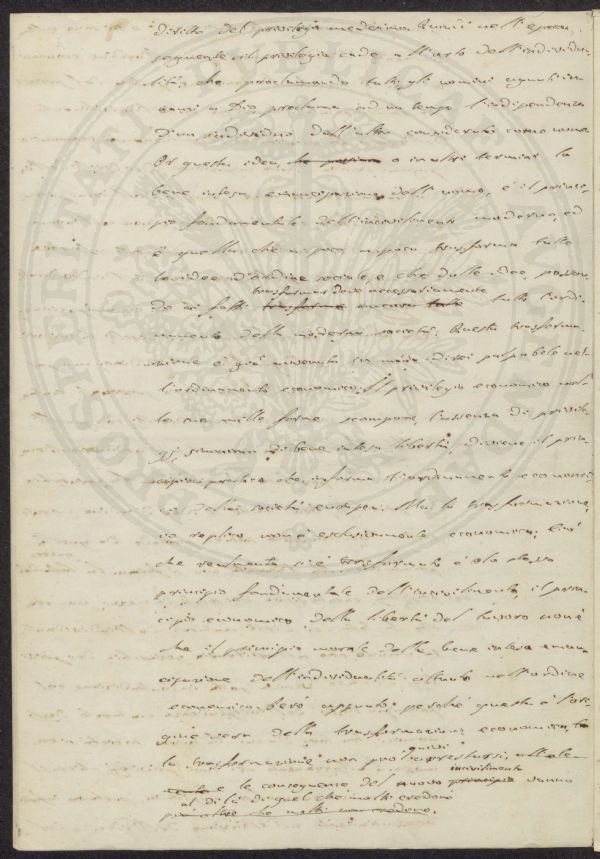 diritto del privilegio medesimo. Quindi nell'epoca
seguente il privilegio cade all'urto dell'individua-
lità, che proclamando tutti gli uomini eguali in-
nanzi a Dio proclama ad un tempo l'indipendenza
d'un individuo dall'altro considerato come uomo.
Or questa idea, o in altri termini la
bene intesa emancipazione dell'uomo, è il princi-
pio fondamentale dell'incivilimento moderno, ed
è quella che a poco a poco trasforma tutte
le idee d'ordine sociale, e che dalle idee, passan-
trasformar deve necessariamente
do ai fatti trasforma ancora tutto tutti l'ordi-
namento della moderna società. Questa trasforma-
zione è già avvenuta in modo direi palpabile nel-
l'ordinamento economico. Il privilegio economico nel-
le sue mille forme scompare, l'assenza di privile-
gj, sinonimo di bene intesa libertà, diviene il prin-
cipio pratico che informa l'ordinamento economi-
co della società europea. Ma la trasformazione,
io replico, non è esclusivamente economica; ciò
che realmente si è trasformato è lo stesso
principio fondamentale dell'incivilimento, il prin-
cipio economico della libertà del lavoro non è
che il principio morale della bene intesa eman-
cipazione dell'individualità attuato nell'ordine
economico. Però appunto perché questa è l'ori-
gine vera della trasformazione economica,
la trasformazione non può arrestarsi,
quivi
incivilimento
le conseguenze del nuovo principio vanno
al di là di quel che molti credono
più oltre che molti non credono.